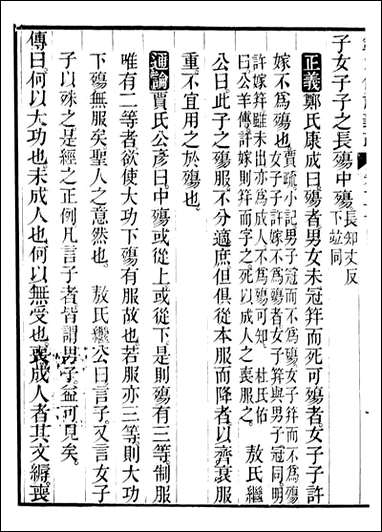 子女子子之長殤中殤長知丈反下竝同
正義鄭氏康成曰殤者男女未冠笄而死可殤者女子子許
嫁不爲殤也賈疏小記男子冠而不爲殤女子子笄而不爲殤女子子許嫁不爲殤者女子子笄與男子冠同明
許嫁笄雖未出亦爲成人不爲殤可知 杜氏佑曰公羊傳許嫁則笄而字之死以成人之喪服之 敖氏繼
公曰此子之殤服不分適庶但俱從本服而降者以齊衰服
重不宜用之於殤也
通論賈氏公彥曰中殤或從上或從下是則殤有三等制服
唯有二等者欲使大功下殤有服故也若服亦三等則大功
下殤無服矣聖人之意然也 敖氏繼公曰言子又言女子
子以殊之是經之正例凡言子者皆謂男子益可見矣
傳曰何以大功也未成人也何以無受也喪成人者其文縟喪